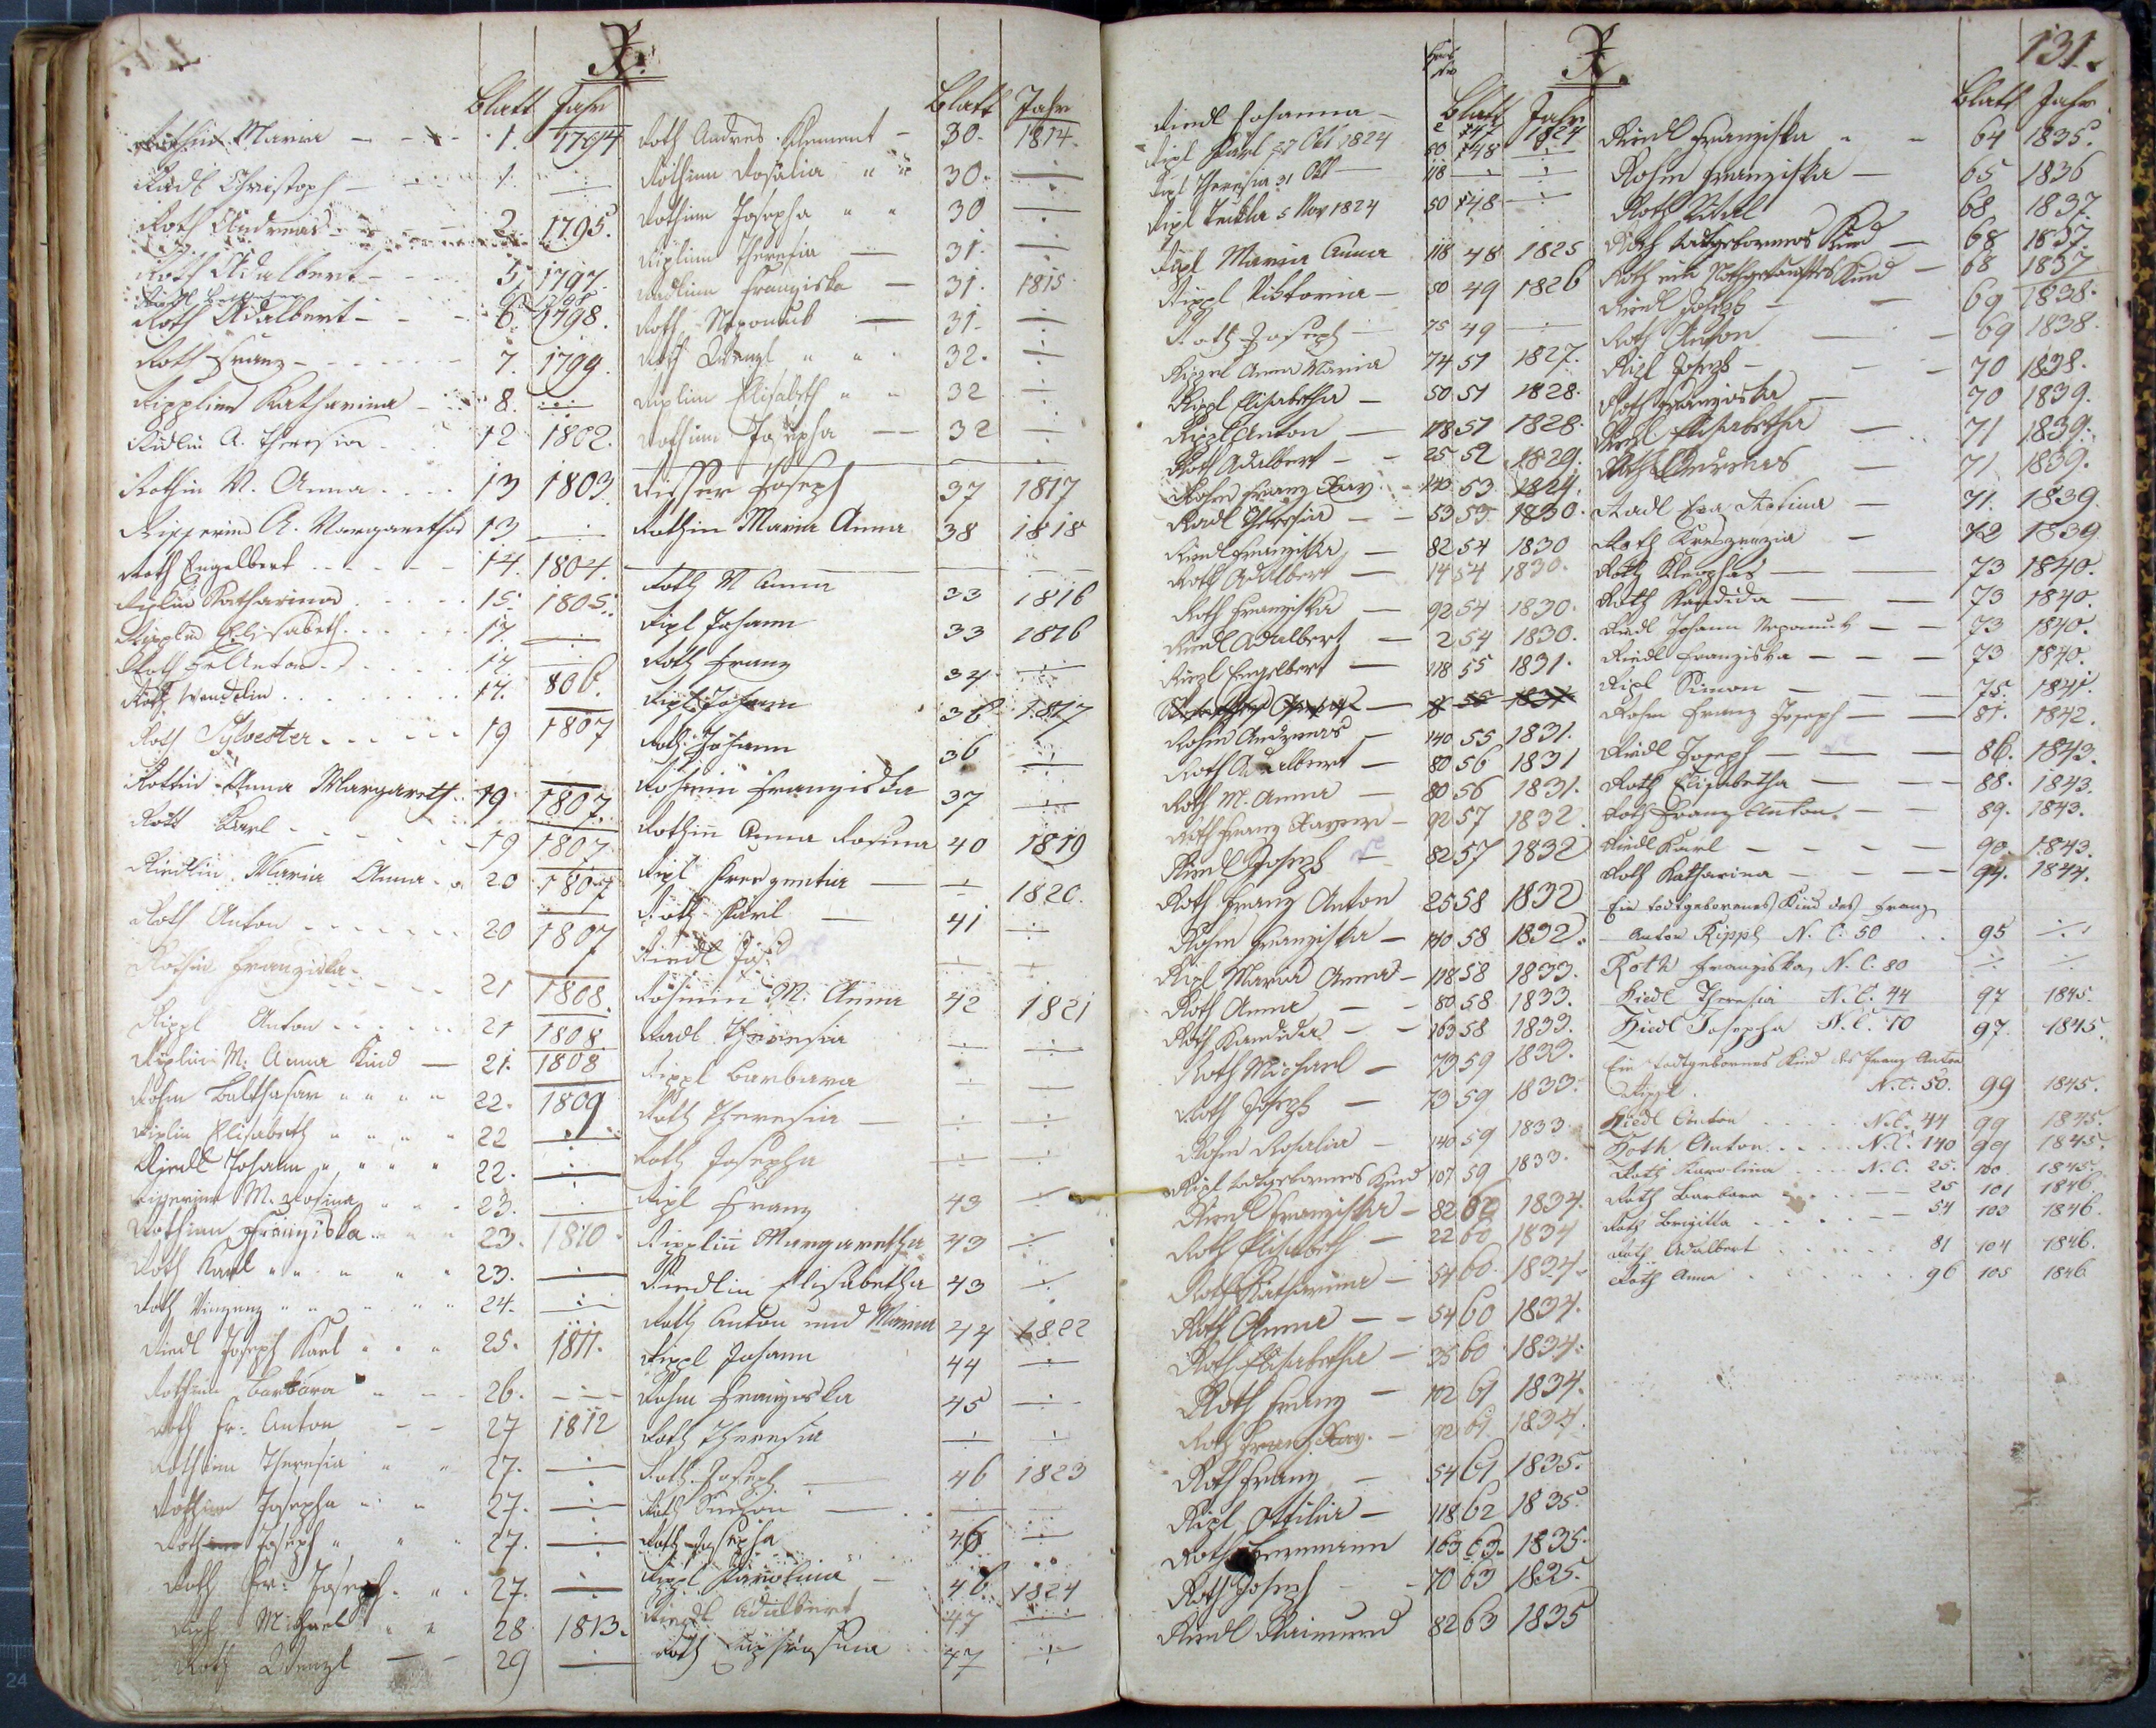 R.
Blatt Jahr
Maria 1. 1794
Radl Christoph 1. ÷
Roth Andreas 2. 1795.
Roth Adalbert 5. 1797.
Roth Adalbert 6. 1798.
Roth Franz 7. 1799.
Ripplin Katharina 8. ÷
A. Theresia 12 1802.
Rothin M. Anna 13 1803.
A. Margaretha 13 ÷
Roth Engelbert 14. 1804.
Riplin Katharina 15. 1805.
Ripplin Elisabeth 17. ÷
Roth Anton 17 ÷
Roth Wendelin 17. 806.
Roth Sylvester 19 1807
Rothin Anna Margareth 19 1807.
Roth Karl 19 1807
Riedlin Maria Anna 20 1807
Roth Anton 20 1807
Rothin Franziska 21 1808.
Rippl Anton 21 1808.
Riplin M. Anna Kind 21. 1808
Rohm Balthasar 22. 1809
Riplin Elisabeth 22 ÷
Riedl Johann 22. ÷
M. Rosina 23. ÷
Rothinn Franziska 23. 1810
Roth Karl 23. ÷
Roth Vinzenz 24. ÷
Riedl Joseph Karl 25. 1811.
Rothinn Barbara 26. ÷
Roth Fr: Anton 27 1812
Rothinn Theresia 27. ÷
Rothinn Josepha 27. ÷
Roth Joseph 27. ÷
Roth Fr: Joseph 27. ÷
Ripl Michael 28 1813.
Roth Wenzl 29 ÷
Blatt Jahr
Roth Andres Klement 30. 1814.
Rothinn Rosalia 30. ÷
Rothinn Josepha 30 ÷
Riplinn Theresia 31. ÷
Radlinn Franziska 31. 1815
Roth Nepomuk 31. ÷
Roth Wenzl 32. ÷
Riplinn Elisabeth 32 ÷
Rothinn Josepha 32 ÷
Joseph 37 1817
Rothin Maria Anna 38 1818
Roth M Anna 33 1816
Ripl Johann 33 1816
Roth Franz 34. ÷
Ripl Johann 36 1817
Roth Johann 36 ÷
Franziska 37 ÷
Rothinn Anna Rosina 40 1819
Ripl Kreszentia ÷ 1820.
Roth Karl 41 ÷
Riedl Jos. ÷ ÷
M. Anna 42 1821
Radl Theresia ÷ ÷
Rippl Barbara ÷ ÷
Roth Theresia ÷ ÷
Roth Josepha ÷ ÷
Ripl Franz 43 ÷
Ripplinn Margaretha 43 ÷
Riedlin Elisabetha 43 ÷
Roth Anton und Maria 44 1822
Rippl Johann 44 ÷
Rohm Franziska 45 ÷
Roth Theresia ÷ ÷
Roth Joseph 46 1823
Roth Simon ÷ ÷
Roth Josepha 46 ÷
Rippl Karolina 46 1824
Riedl Adalbert 47 ÷
Roth Euphrosina 47 ÷
R.
131.
Haus Nro
Blatt Jahr
Riedl Johanna 2 47 1824
Ripl Karl 27 Okt 1824 50 48 ÷
Ripl Theresia 31 Okt 118 ÷ ÷
Ripl Tekla 5 Nov 1824 50 48 ÷
Ripl Maria Anna 118 48 1825
Rippl Viktoria 50 49 1826
Roth Joseph 75 49 ÷
Rippel Anna Maria 74 51 1827.
Rippl Elisabetha 50 51 1828.
Rippl Anton 118 51 1828.
Roth Adalbert 25 52 1829.
Rohm Franz Xav. 140 53 1829.
Radl Theresia 53 53 1830.
Riedl Franziska 82 54 1830
Roth Adalbert 14 54 1830.
Roth Franziska 92 54 1830.
Riedl Adalbert 2 54 1830.
Riepl Engelbert 118 55 1831.
8 55 1831
Rohm Andreas 140 55 1831.
Roth Adalbert 80 56 1831
Roth M. Anna 80 56 1831.
Roth Franz Xaver 92 57 1832.
Riedl Joseph 82 57 1832
Roth Franz Anton 25 58 1832
Rohm Franziska 140 58 1832.
Ripl Maria Anna 118 58 1833.
Roth Anna 80 58 1833.
Roth Kandida 163 58 1833.
Roth Michael 73 59 1833.
Roth Joseph 73 59 1833.
Rohm Rosalia 140 59 1833.
Ripl todtgebornes Kind 107 59 1833.
Riedl Franziska 82 60 1834.
Roth Elisabeth 22 60 1834
Roth Katharina 54 60 1834.
Roth Anna 54 60 1834.
Roth Elisabetha 35 60 1834.
Roth Franz 102 61 1834.
Roth Franz Xav. 92 61 1834.
Roth Franz 54 61 1835.
Ripl Ottilia 118 62 1835.
Roth Hermann 163 63. 1835.
Roth Joseph 70 63 1835.
Riedl Raimund 82 63 1835
Blatt Jahr
Riedl Franziska 64 1835.
Rohm Franziska 65 1836
Roth Vital 68 1837.
Roth todtgebornes Kind 68 1837.
Roth ein Nothgetauftes Kind 68 1837
Riedl Joseph 69 1838.
Roth Anton 69 1838.
Ripl Joseph 70 1838.
Roth Franziska 70 1839.
Riepl Elisabetha 71 1839.
Roth Andreas 71 1839.
Radl Eva Rosina 71. 1839
Roth Kreszenzia 72 1839
Roth Kleophas 73 1840.
Roth Kandida 73 1840.
Riedl Johann Nepomuk 73 1840.
Riedl Franziska 73 1840.
Ripl Simon 75. 1841.
Rohm Franz Joseph 81. 1842.
Riedl Joseph 86. 1843.
Roth Elisabetha 88. 1843.
Roth Franz Anton. 89. 1843.
Riedl Karl 90 1843.
Roth Katharina 94. 1844.
Ein todtgeborenes Kind des Franz
Anton Rippl N. C. 50 95 ÷
Roth Franziska N. C. 80 ÷ ÷
Riedl Theresia N. C. 44 97 1845.
Riedl Josepha N. C. 70 97. 1845.
Ein todtgebornes Kind des Franz Anton
Rippl. N. C. 50. 99 1845.
Riedl Anton N. C. 44 99 1845.
Roth Anton N. C. 140 99 1845.
Roth Karolina N. C. 25. 100. 1845.
Roth Barbara 25 101 1846
Roth Brigitta 54 103 1846.
Roth Adalbert 81 104 1846.
Roth Anna 96 105 1846.
24